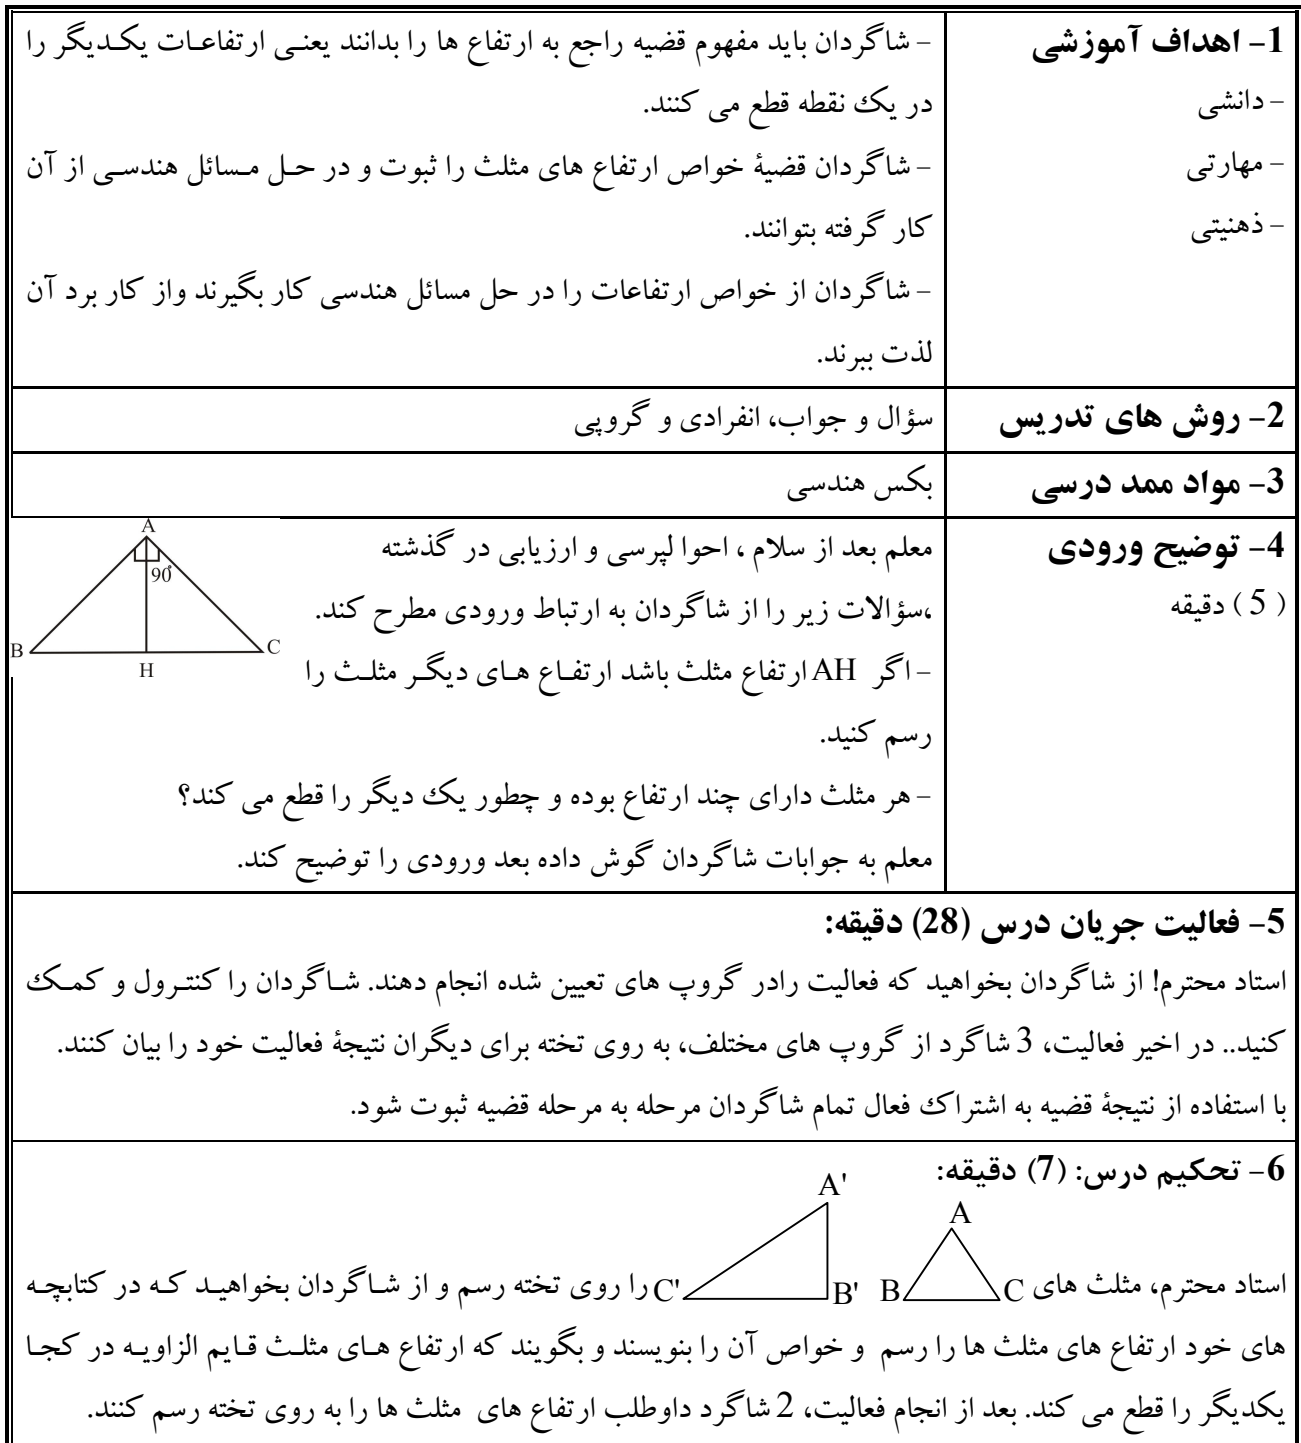 1- اهداف آموزشی
- دانشی
- مهارتی
- ذهنیتی
- شاگردان باید مفهوم قضیه راجع به ارتفاع ها را بدانند یعنی ارتفاعات یکدیگر را
در یک نقطه قطع می کنند.
- شاگردان قضیۀ خواص ارتفاع های مثلث را ثبوت و در حل مسائل هندسی از آن
کار گرفته بتوانند.
- شاگردان از خواص ارتفاعات را در حل مسائل هندسی کار بگیرند واز کار برد آن
لذت ببرند.
2- روش های تدریس
سؤال و جواب، انفرادی و گروپی
3- مواد ممد درسی
بکس هندسی
4- توضیح ورودی
( 5 ) دقیقه
معلم بعد از سلام ، احوا لپرسی و ارزیابی در گذشته
،سؤالات زیر را از شاگردان به ارتباط ورودی مطرح کند.
- اگر AH ارتفاع مثلث باشد ارتفاع های دیگر مثلث را
رسم کنید.
- هر مثلث دارای چند ارتفاع بوده و چطور یک دیگر را قطع می کند؟
معلم به جوابات شاگردان گوش داده بعد ورودی را توضیح کند.
A
90°
B
C
H
5- فعالیت جریان درس (28) دقیقه:
استاد محترم! از شاگردان بخواهید که فعالیت رادر گروپ های تعیین شده انجام دهند. شاگردان را کنترول و کمک
کنید.. در اخیر فعالیت، 3 شاگرد از گروپ های مختلف، به روی تخته برای دیگران نتیجۀ فعالیت خود را بیان کنند.
با استفاده از نتیجۀ قضیه به اشتراک فعال تمام شاگردان مرحله به مرحله قضیه ثبوت شود.
6- تحکیم درس: (7) دقیقه:
A'
A
استاد محترم، مثلث های C B B' C' را روی تخته رسم و از شاگردان بخواهید که در کتابچه
های خود ارتفاع های مثلث ها را رسم و خواص آن را بنویسند و بگویند که ارتفاع های مثلث قایم الزاویه در کجا
یکدیگر را قطع می کند. بعد از انجام فعالیت، 2 شاگرد داوطلب ارتفاع های مثلث ها را به روی تخته رسم کنند.